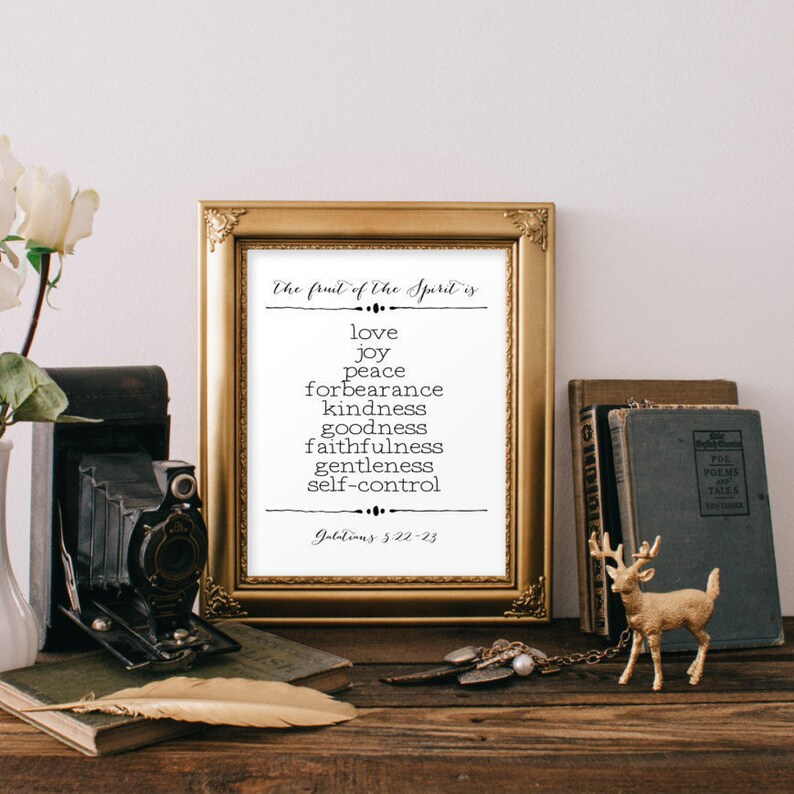 the fruit of the Spirit is
love
joy
peace
forbearance
kindness
goodness
faithfulness
gentleness
self-control
Galatians 5:22-23
POE
POEMS
AND
TALES